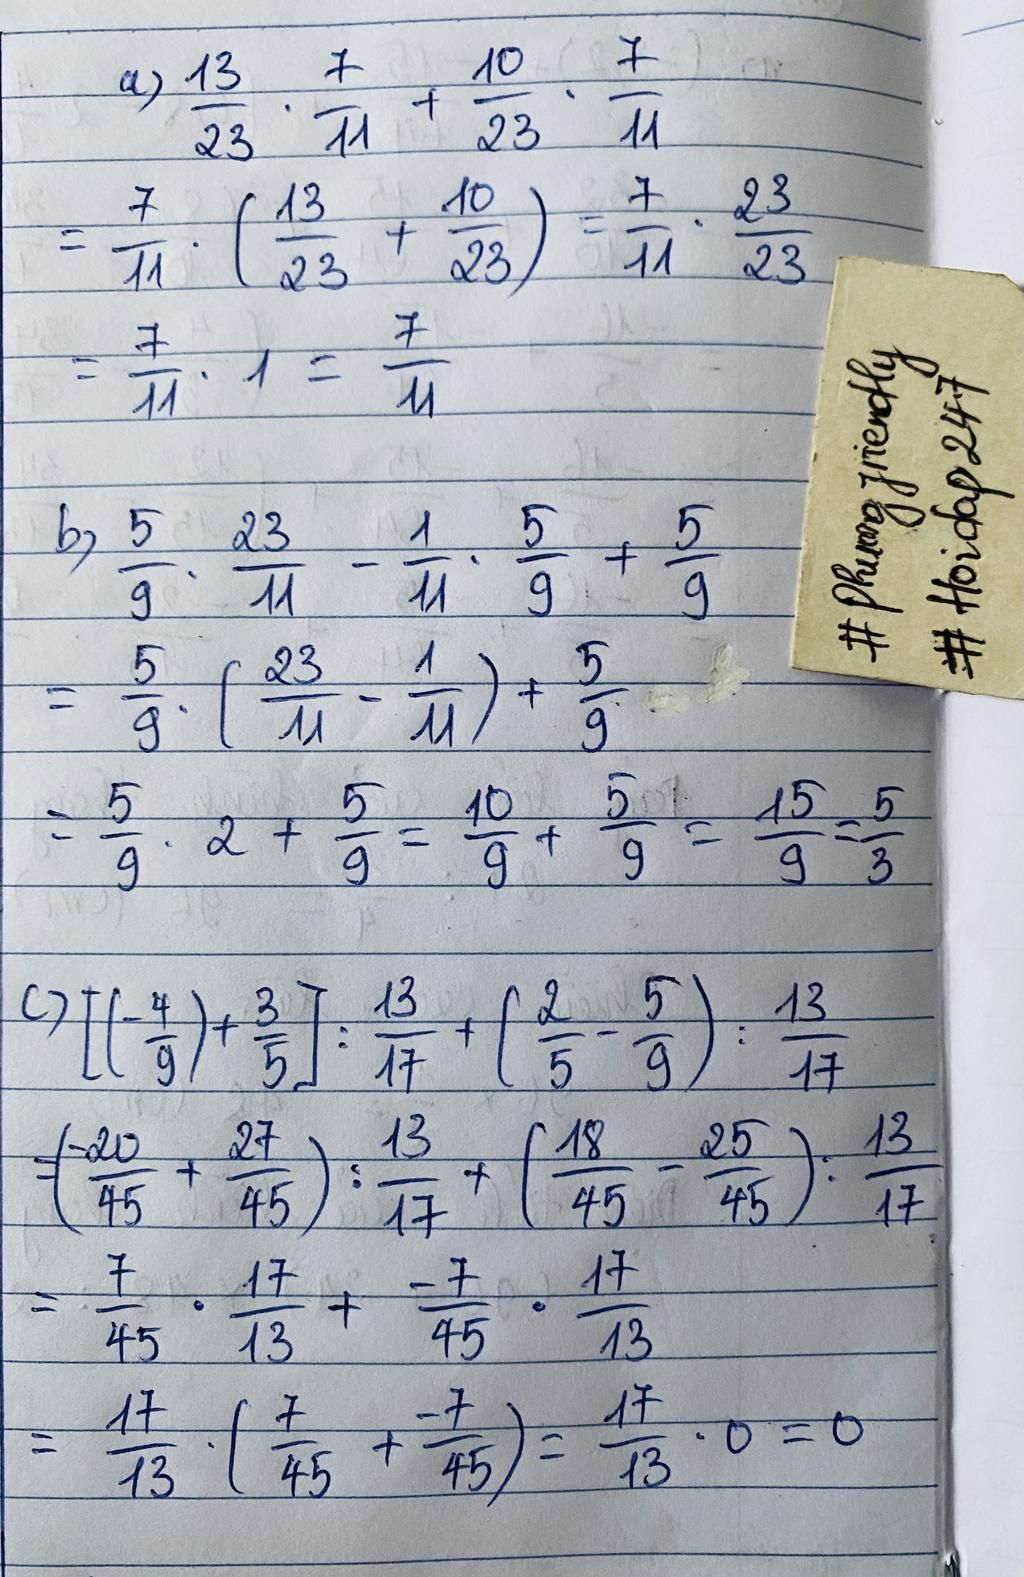 a) 13/23 . 7/11 + 10/23 . 7/11
= 7/11 . (13/23 + 10/23) = 7/11 . 23/23
= 7/11 . 1 = 7/11
b) 5/9 . 23/11 - 1/11 . 5/9 + 5/9
= 5/9 . (23/11 - 1/11) + 5/9
= 5/9 . 2 + 5/9 = 10/9 + 5/9 = 15/9 = 5/3
c) [(-4/9) + 3/5] : 13/17 + (2/5 - 5/9) : 13/17
= (-20/45 + 27/45) : 13/17 + (18/45 - 25/45) : 13/17
= 7/45 . 17/13 + -7/45 . 17/13
= 17/13 . (7/45 + -7/45) = 17/13 . 0 = 0
#Hoidap247